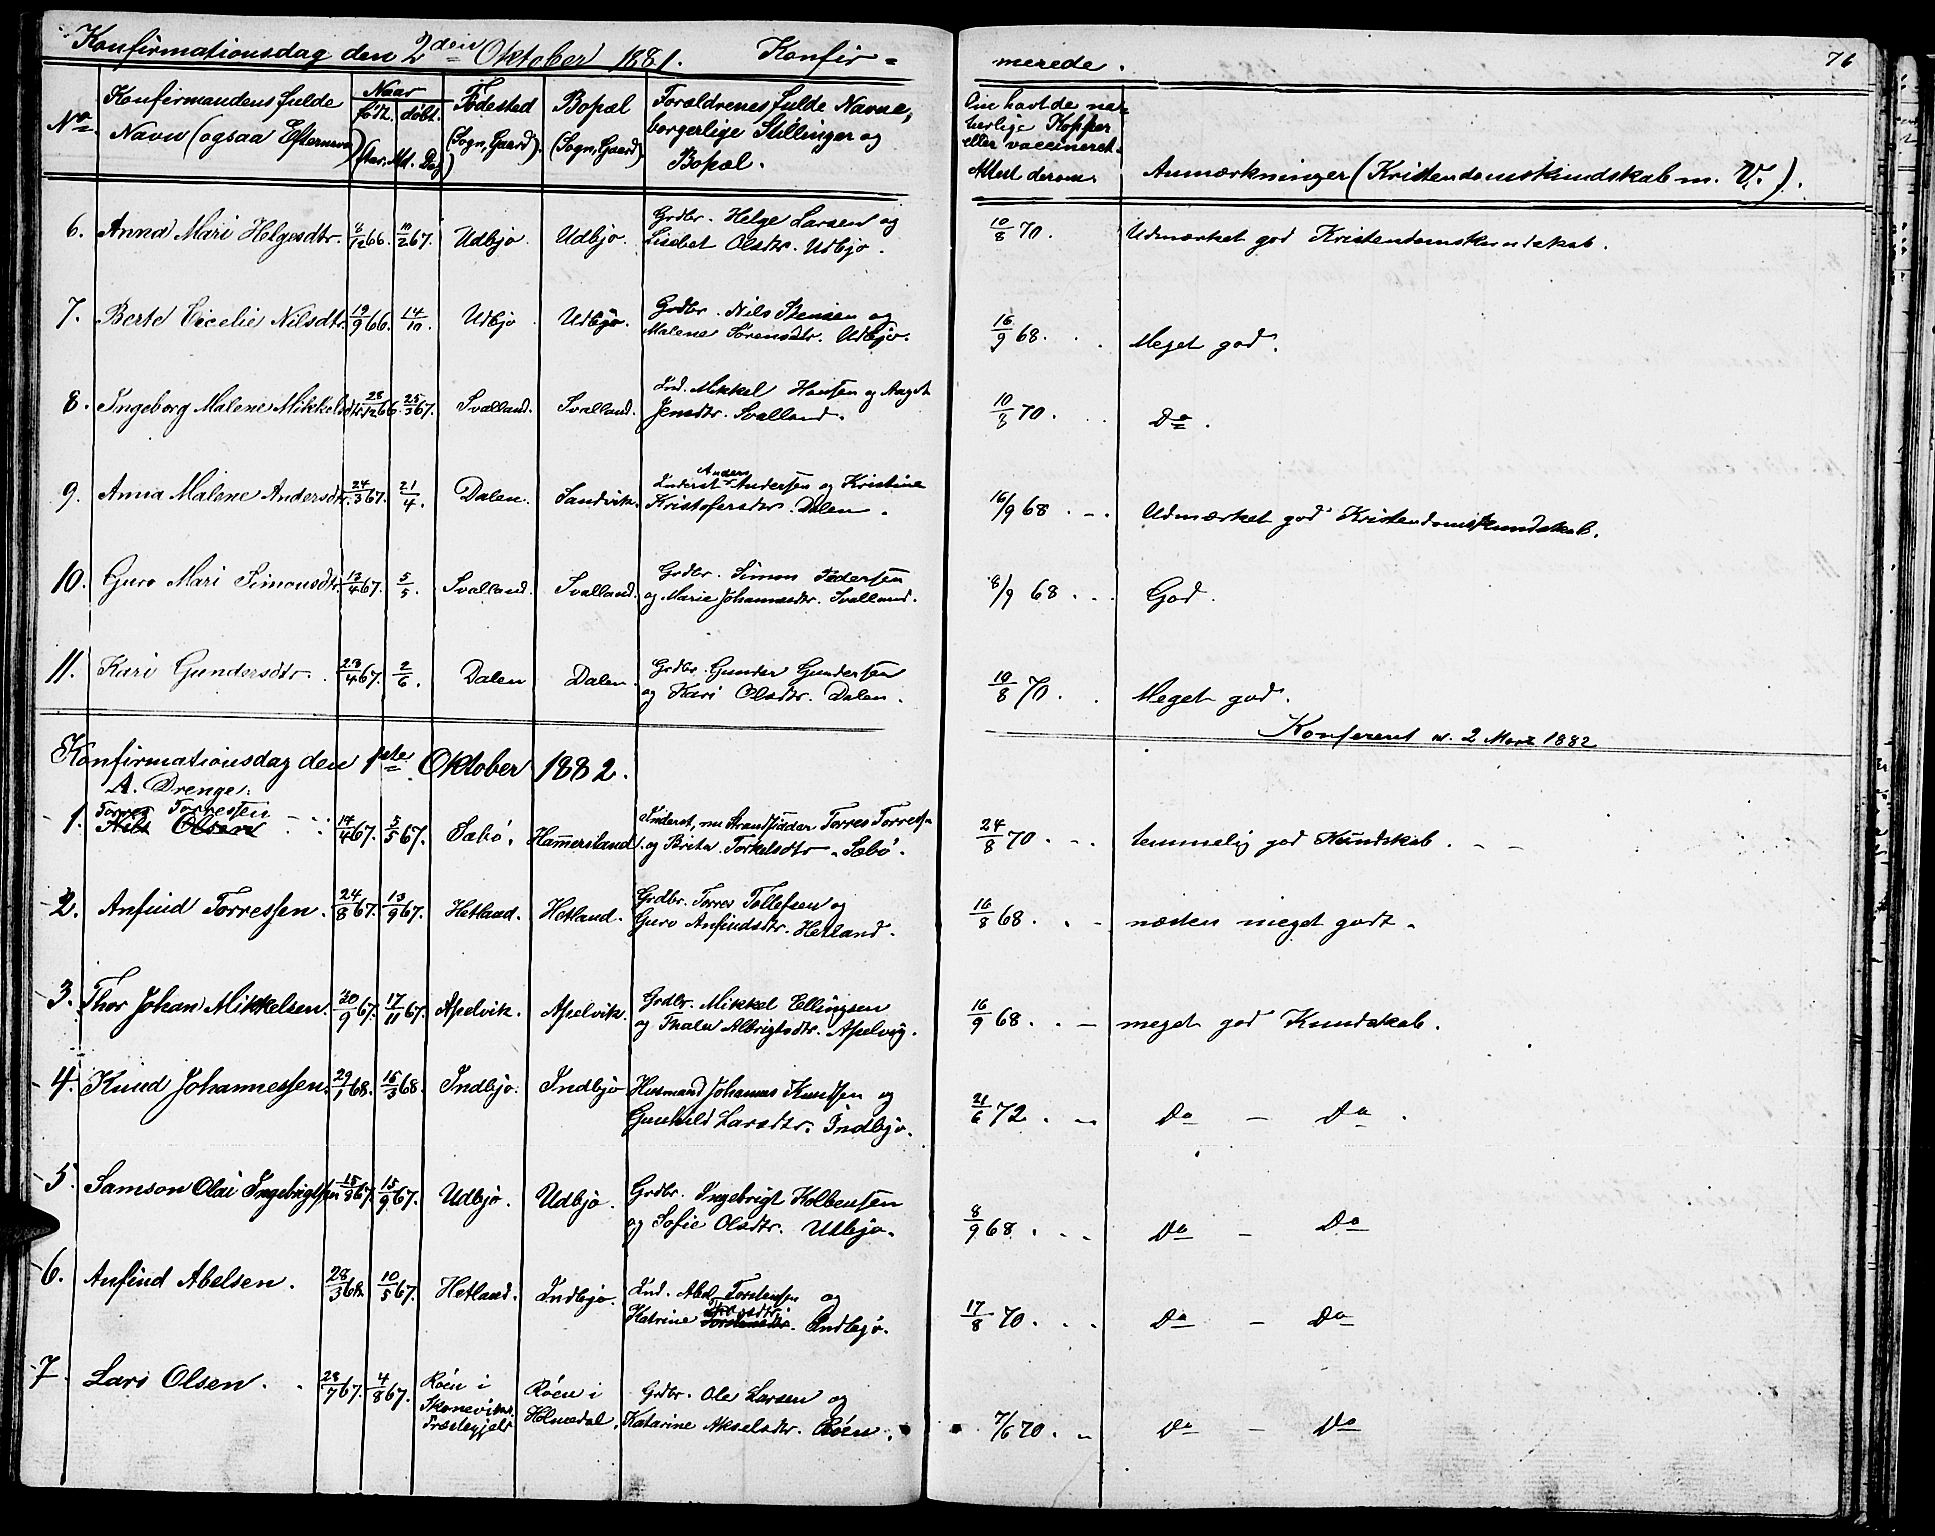 Konfirmationsdag den 2den Oktober 1881. Konfir-
merede. 76
No Konfirmandens fulde Navn (ogsaa Efternavn) Naar født. døbt. (Aar, Md. Dag) Fødested (Sogn, Gaard). Bopæl (Sogn, Gaard) Forældrenes fulde Navne, borgerlige Stillinger og Bopæl. Om havt de naturlige Kopper eller vaccineret. Attest derom. Anmærkninger (Kristendomskundskab m. V.).
6. Anna Mari Helgesdtr. 8/12 66. 10/2 67. Udbjo Udbjo. Grdbr. Helge Larsen og
Lisebet Olsdtr. Udbjo. 10/8 70. Udmærket god Kristendomskundskab.
7. Berte Cicelie Nilsdtr. 19/9 66. 14/10. Udbjo Udbjo. Grdbr. Nils Stensen og
Malene Sørensdtr. Udbjo. 16/9 68. Meget god.
8. Ingeborg Malene Mikkelsdtr. 28/12 66. 25/3 67. Svalland. Svalland. Ind. Mikkel Hansen og Aagot
Jensdtr. Svalland. 10/8 70. Do.
9. Anna Malene Andersdtr. 24/3 67. 21/4. Dalen. Sandvik. Inderst Anders Andersen og Kristine
Kristofersdtr. Dalen. 16/9 68. Udmærket god Kristendomskundskab.
10. Guro Mari Simonsdtr. 13/4 67. 5/5. Svalland. Svalland. Grdbr. Simon Pedersen
og Marie Johannesdtr. Svalland. 8/9 68. God.
11. Kari Gundersdtr. 28/4 67. 2/6. Dalen Dalen. Grdbr. Gunder Gundersen
og Kari Olsdtr. Dalen. 10/8 70. Meget god.
Konfereret d. 2 Marz 1882
Konfirmationsdag den 1ste Oktober 1882.
A. Drenge:
1. Torres Torressen
Nils Olsen 14/4 67. 5/5 67. Sæbø. Hammersland. Inderst, nu Strandsidder Torres Torressen
og Brita Torkelsdtr. Sæbø. 24/8 70. temmelig god Kundskab.
2. Anfind Torressen. 24/8 67. 13/9 67. Hetland. Hetland. Grdbr. Torres Tollefsen og
Guro Anfindsdtr. Hetland. 16/8 68. næsten meget godt.
3. Thor Johan Mikkelsen. 20/9 67. 17/11 67. Apelvik. Apelvik. Grdbr. Mikkel Ellingsen
og Thale Albrigtsdtr. Apelvig. 16/9 68. meget god Kundskab.
4. Knud Johannessen. 29/1 68. 15/3 68. Indbjo. Indbjo Husmand Johannes Knudsen og
Gunhild Larsdtr. Indbjo. 21/6 72. Do - Do.
5. Samson Olai Ingebrigtsen 15/8 67. 15/9 67. Udbjo. Udbjo. Grdbr. Ingebrigt Kolbensen
og Sofie Olsdtr. Udbjo. 8/9 68. Do - Do
6. Anfind Abelsen. 28/3 68. 10/5 67. Hetland. Indbjo. Ind. Abel Torstensen og
Katrine Torstensdtr. Indbjo. 17/8 70. Do - Do
7. Lars Olsen. 28/7 67. 4/8 67. Røen i
Skonevikes
Præstegjeld Røen i
Holmedal. Grdbr. Ole Larsen og
Katarine Akselsdtr. Røen. 7/6 70. Do - Do